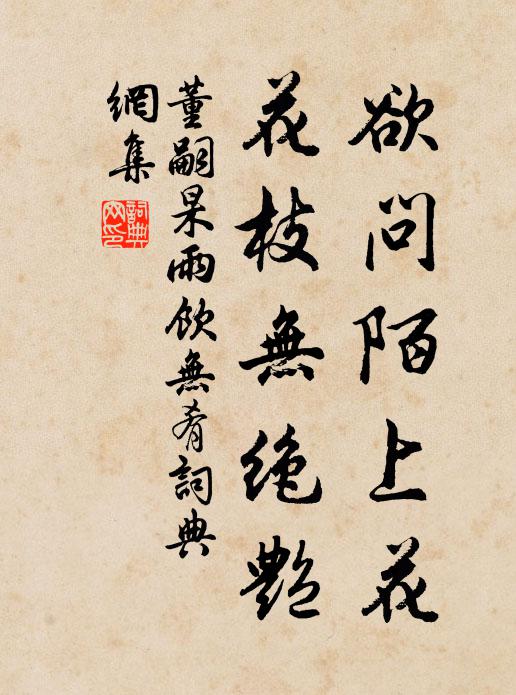 欲问陌上花
花枝無绝艷
董嗣杲雨飲無肴詞典
網集
詞典